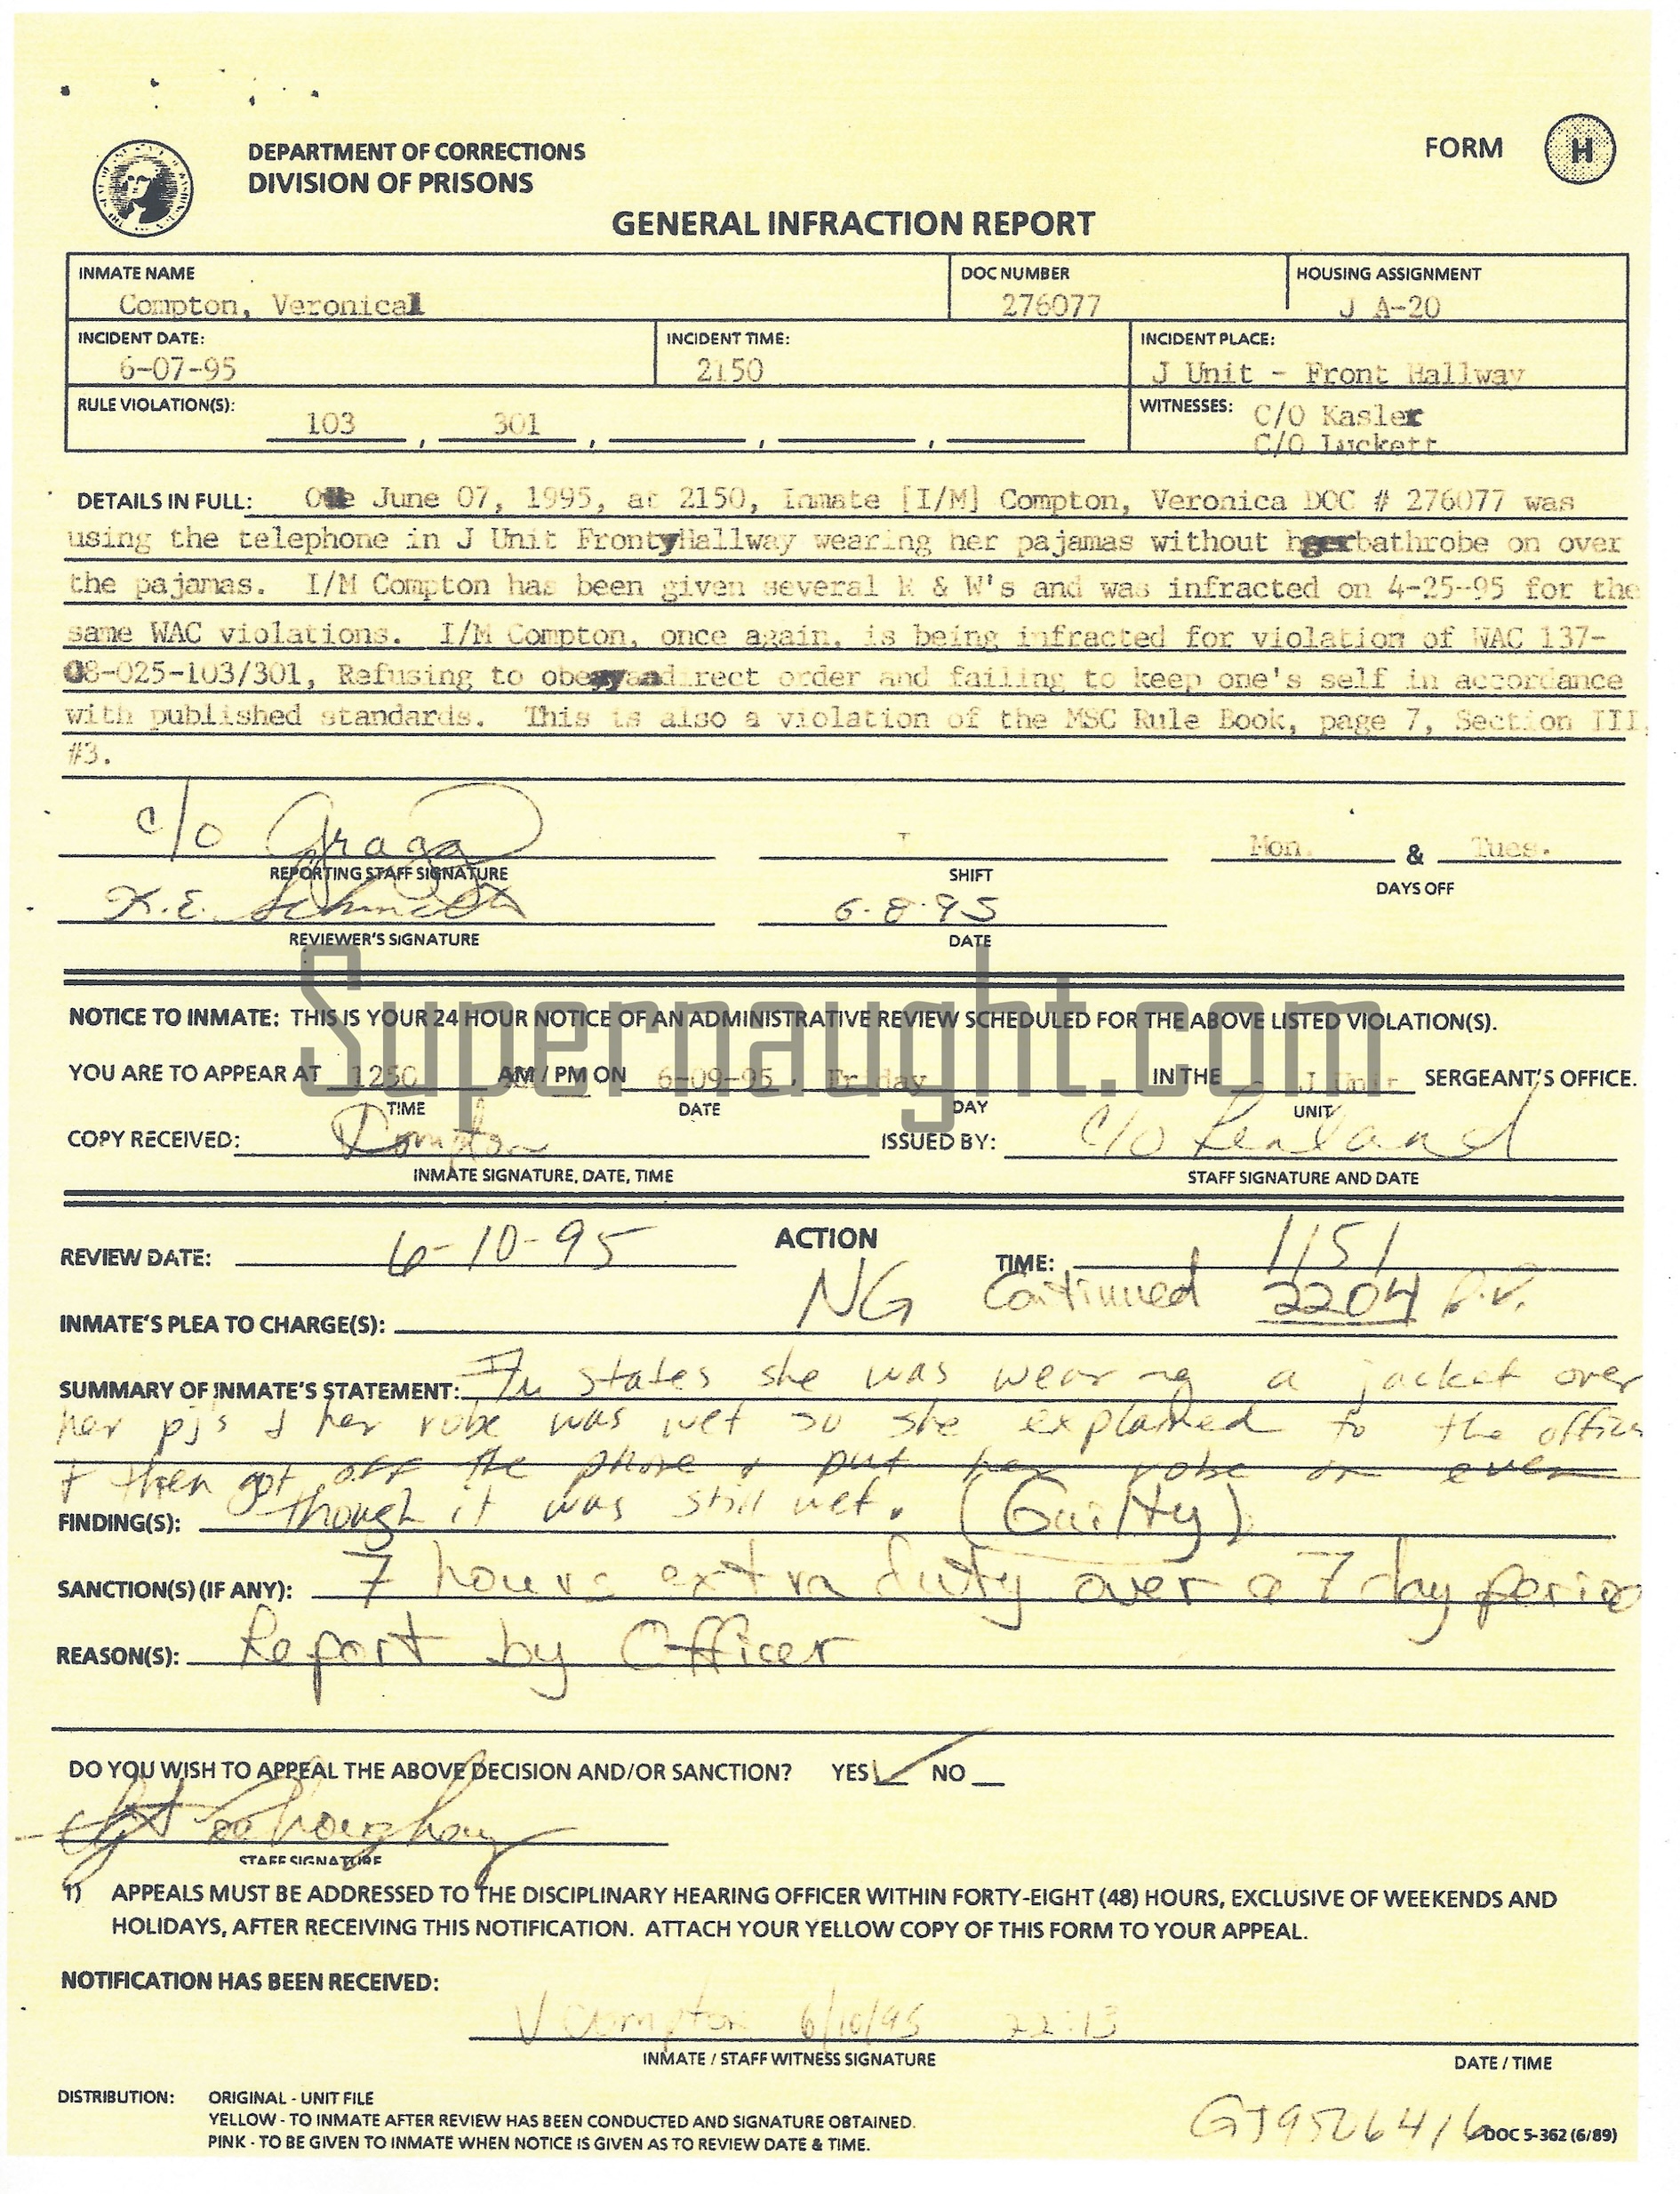 DEPARTMENT OF CORRECTIONS
DIVISION OF PRISONS
FORM H
GENERAL INFRACTION REPORT
INMATE NAME DOC NUMBER HOUSING ASSIGNMENT
Compton, Veronical 276077 J A-20
INCIDENT DATE: INCIDENT TIME: INCIDENT PLACE:
6-07-95 2150 J Unit - Front Hallway
RULE VIOLATION(S): WITNESSES: C/O Kasler
103 , 301 , , ,
C/O Luckett
DETAILS IN FULL: June 07, 1995, at 2150, Inmate [I/M] Compton, Veronica DOC # 276077 was
using the telephone in J Unit FrontyHallway wearing her pajamas without bathrobe on over
the pajamas. I/M Compton has been given several R & W's and was infracted on 4-25-95 for the
same WAC violations. I/M Compton, once again, is being infracted for violation of WAC 137-
08-025-103/301, Refusing to direct order and failing to keep one's self in accordance
with published standards. This is also a violation of the MSC Rule Book, page 7, Section III,
#3.
c/o I Mon. & Tues.
REPORTING STAFF SIGNATURE SHIFT DAYS OFF
K.E. 6-8-95
REVIEWER'S SIGNATURE DATE
Supernaught.com
NOTICE TO INMATE: THIS IS YOUR 24 HOUR NOTICE OF AN ADMINISTRATIVE REVIEW SCHEDULED FOR THE ABOVE LISTED VIOLATION(S).
YOU ARE TO APPEAR AT 1250 AM / PM ON 6-09-95, Friday IN THE J Unit SERGEANT'S OFFICE.
TIME DATE DAY UNIT
COPY RECEIVED: Compton ISSUED BY: C/O
INMATE SIGNATURE, DATE, TIME STAFF SIGNATURE AND DATE
ACTION
REVIEW DATE: 6-10-95 TIME: 1151
INMATE'S PLEA TO CHARGE(S): NG Continued 2204
SUMMARY OF INMATE'S STATEMENT: I/M states she was wearing a jacket over
her pjs & her robe was wet so she explained to the officer
& then got off the phone & put her robe on even
though it was still wet. (Guilty)
FINDING(S):
SANCTION(S) (IF ANY): 7 hours extra duty over a 7 day period
REASON(S): Report by Officer
DO YOU WISH TO APPEAL THE ABOVE DECISION AND/OR SANCTION? YES ✓ NO
STAFF SIGNATURE
1) APPEALS MUST BE ADDRESSED TO THE DISCIPLINARY HEARING OFFICER WITHIN FORTY-EIGHT (48) HOURS, EXCLUSIVE OF WEEKENDS AND
HOLIDAYS, AFTER RECEIVING THIS NOTIFICATION. ATTACH YOUR YELLOW COPY OF THIS FORM TO YOUR APPEAL.
NOTIFICATION HAS BEEN RECEIVED:
V Compton 6/10/95 22:13
INMATE / STAFF WITNESS SIGNATURE DATE / TIME
DISTRIBUTION: ORIGINAL - UNIT FILE
YELLOW - TO INMATE AFTER REVIEW HAS BEEN CONDUCTED AND SIGNATURE OBTAINED.
PINK - TO BE GIVEN TO INMATE WHEN NOTICE IS GIVEN AS TO REVIEW DATE & TIME.
DOC 5-362 (6/89)